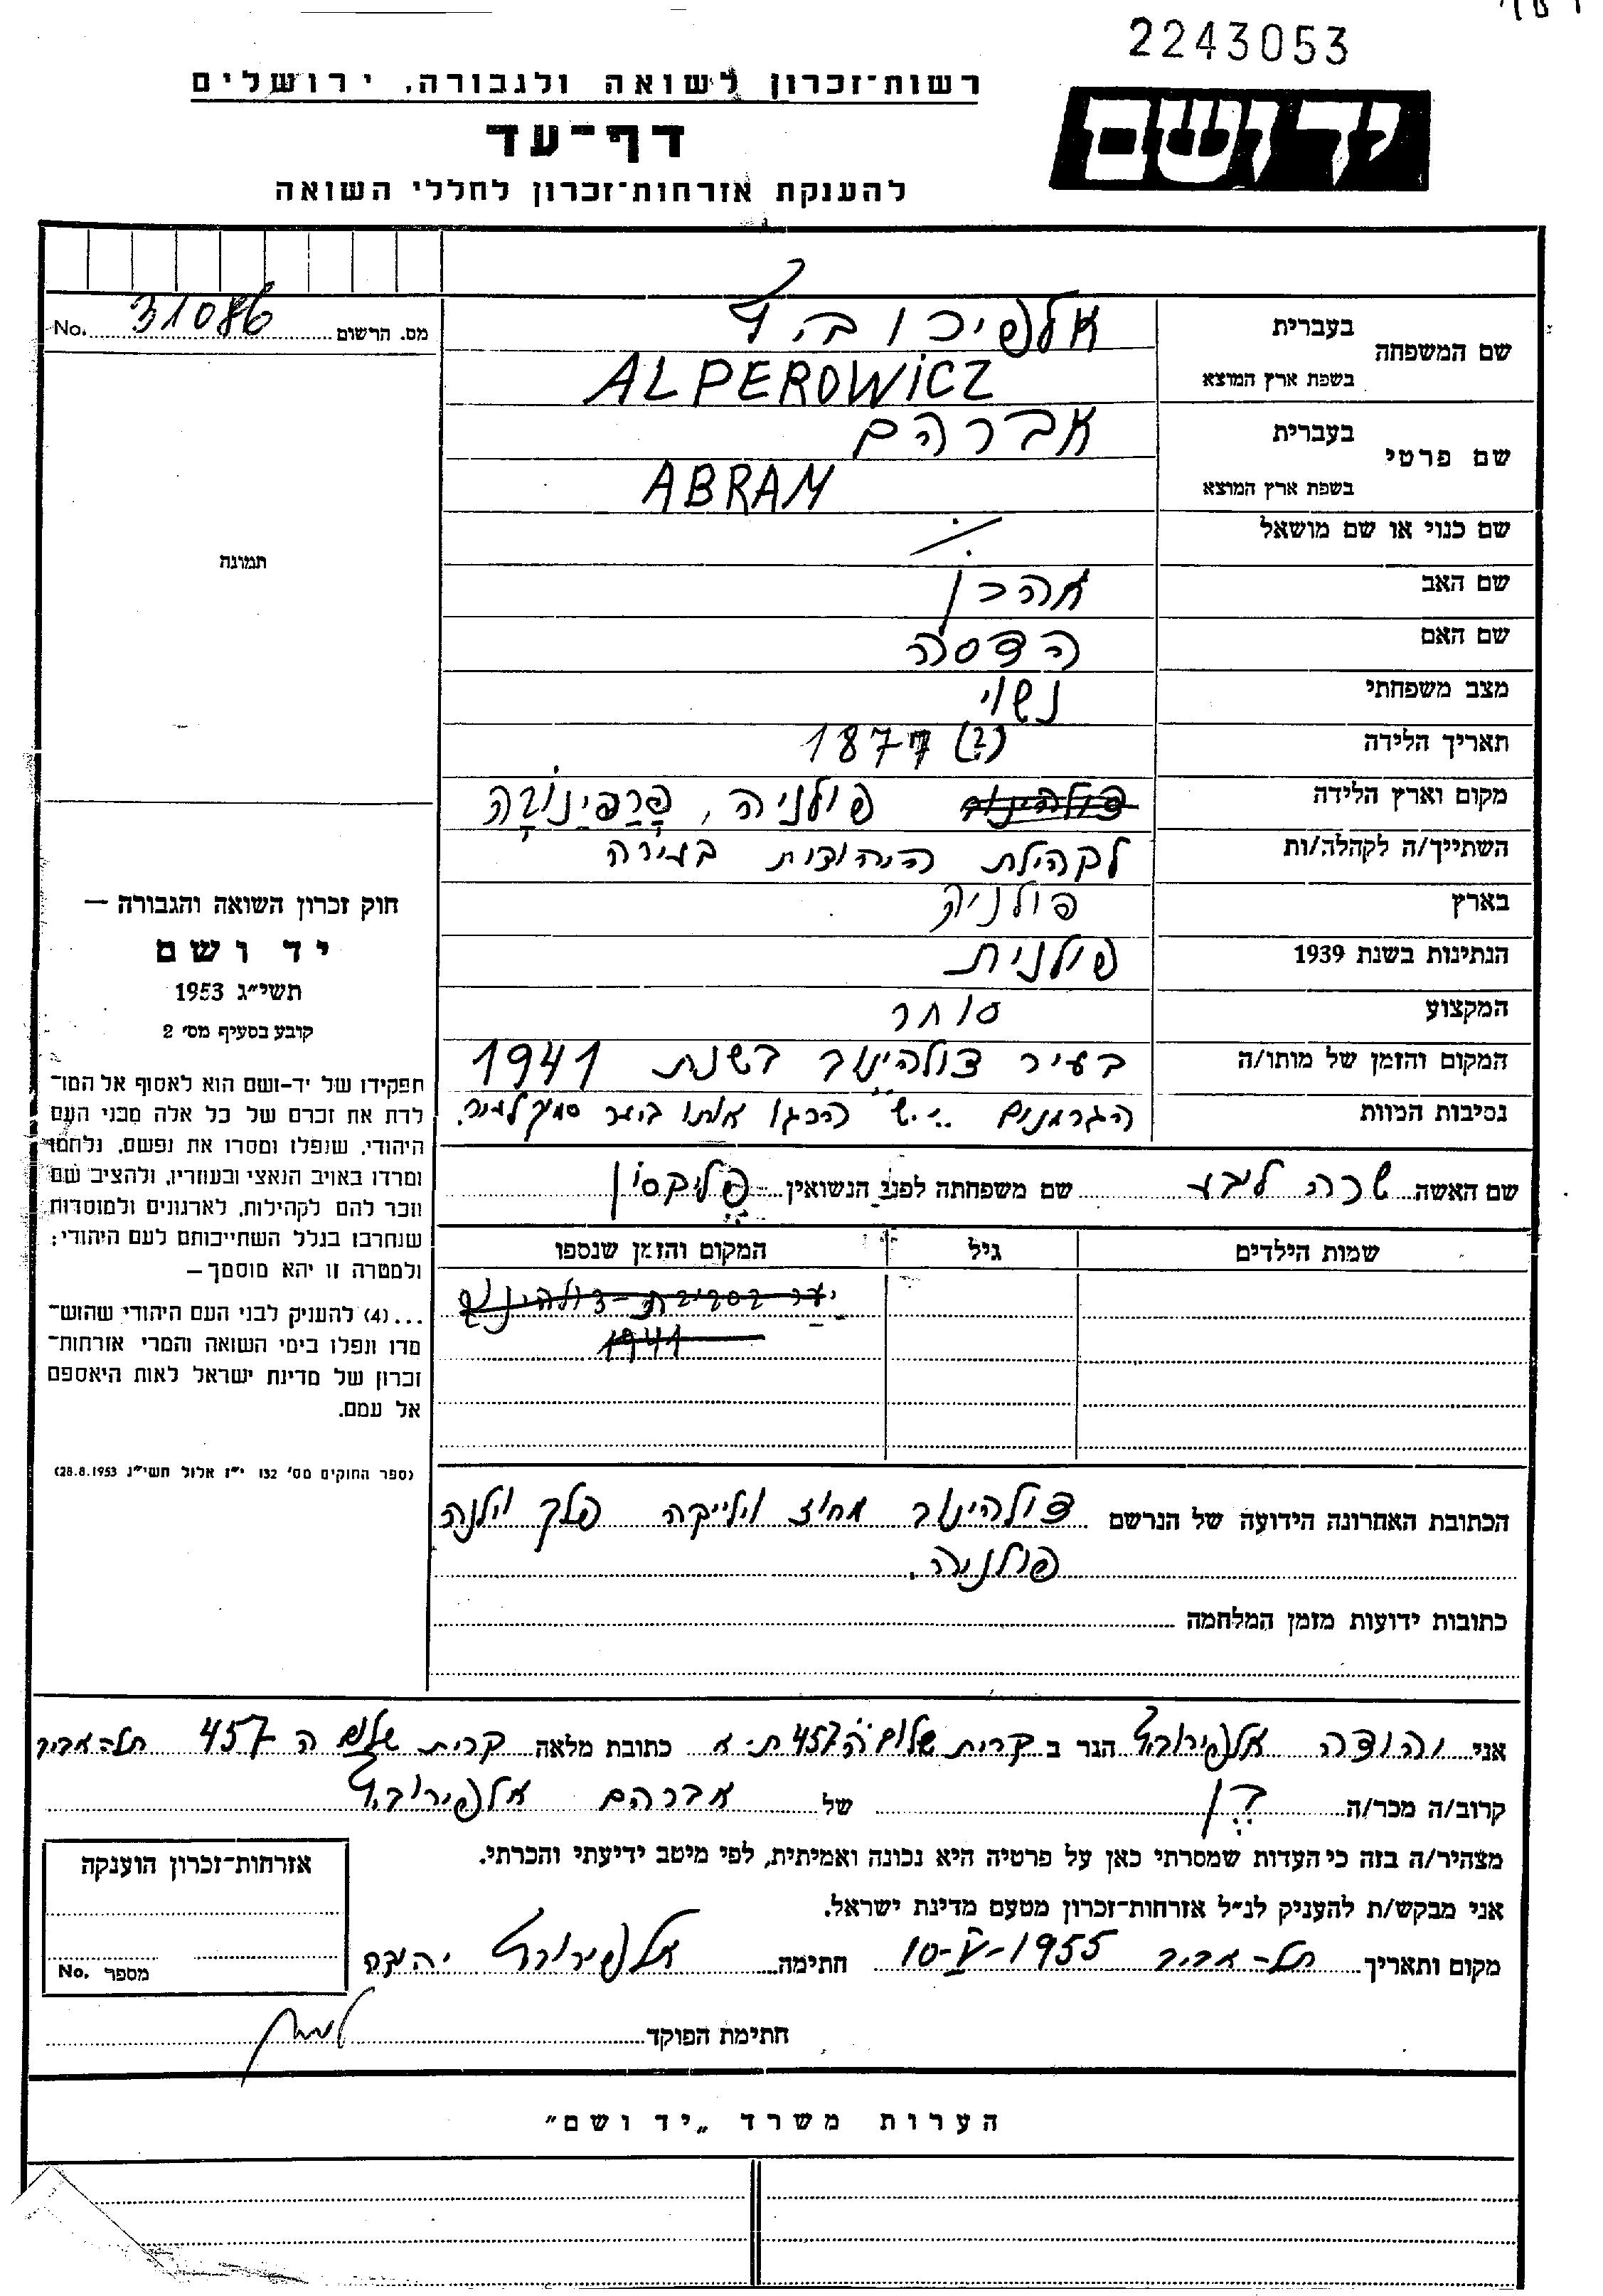 2243053
יד ושם
רשות־זכרון לשואה ולגבורה, ירושלים
דף־עד
להענקת אזרחות־זכרון לחללי השואה
מס. הרשום 31086 No.
שם המשפחה בעברית אלפירוביץ
בשפת ארץ המוצא ALPEROWICZ
שם פרטי בעברית אברהם
בשפת ארץ המוצא ABRAM
שם כנוי או שם מושאל ./.
שם האב אהרן
שם האם הדסה
מצב משפחתי נשוי
תאריך הלידה (?) 1877
מקום וארץ הלידה דולהינוב פולניה, פרפינובה
השתייך/ה לקהלה/ות לקהילת היהודות בעירה
בארץ פולניה
הנתינות בשנת 1939 פולנית
המקצוע סוחר
המקום והזמן של מותו/ה בעיר דולהינוב בשנת 1941
נסיבות המוות הגרמנים ימ"ש הרגו אותו ביער סמוך לעיר.
שם האשה שרה ליבע שם משפחתה לפני הנשואין פליקסון
שמות הילדים גיל המקום והזמן שנספו
יער בסביבת-דולהינוב
1941
תמונה
חוק זכרון השואה והגבורה —
יד ושם
תשי״ג 1953
קובע בסעיף מס׳ 2
תפקידו של יד-ושם הוא לאסוף אל המו־
לדת את זכרם של כל אלה מבני העם
היהודי, שנפלו ומסרו את נפשם, נלחמו
ומרדו באויב הנאצי ובעוזריו, ולהציב שם
וזכר להם לקהילות, לארגונים ולמוסדות
שנחרבו בגלל השתייכותם לעם היהודי;
ולמטרה זו יהא מוסמך —
...(4) להעניק לבני העם היהודי שהוש־
מדו ונפלו בימי השואה והמרי אזרחות־
זכרון של מדינת ישראל לאות היאספם
אל עמם.
(ספר החוקים מס׳ 132 י״ז אלול תשי״ג 28.8.1953)
הכתובת האחרונה הידועה של הנרשם דולהינוב מחוז וילייקה פלך וילנה
פולניה.
כתובות ידועות מזמן המלחמה
אני יהודה אלפירוביץ הגר ב קרית שלום ה 457 ת-א כתובת מלאה קרית שלום ה 457 תל-אביב
קרוב/ה מכר/ה בן של אברהם אלפירוביץ
מצהיר/ה בזה כי העדות שמסרתי כאן על פרטיה היא נכונה ואמיתית, לפי מיטב ידיעתי והכרתי.
אני מבקש/ת להעניק לנ״ל אזרחות־זכרון מטעם מדינת ישראל.
מקום ותאריך תל-אביב 10-V-1955 חתימה אלפירוביץ יהודה
אזרחות־זכרון הוענקה
מספר No.
חתימת הפוקד
הערות משרד „יד ושם״